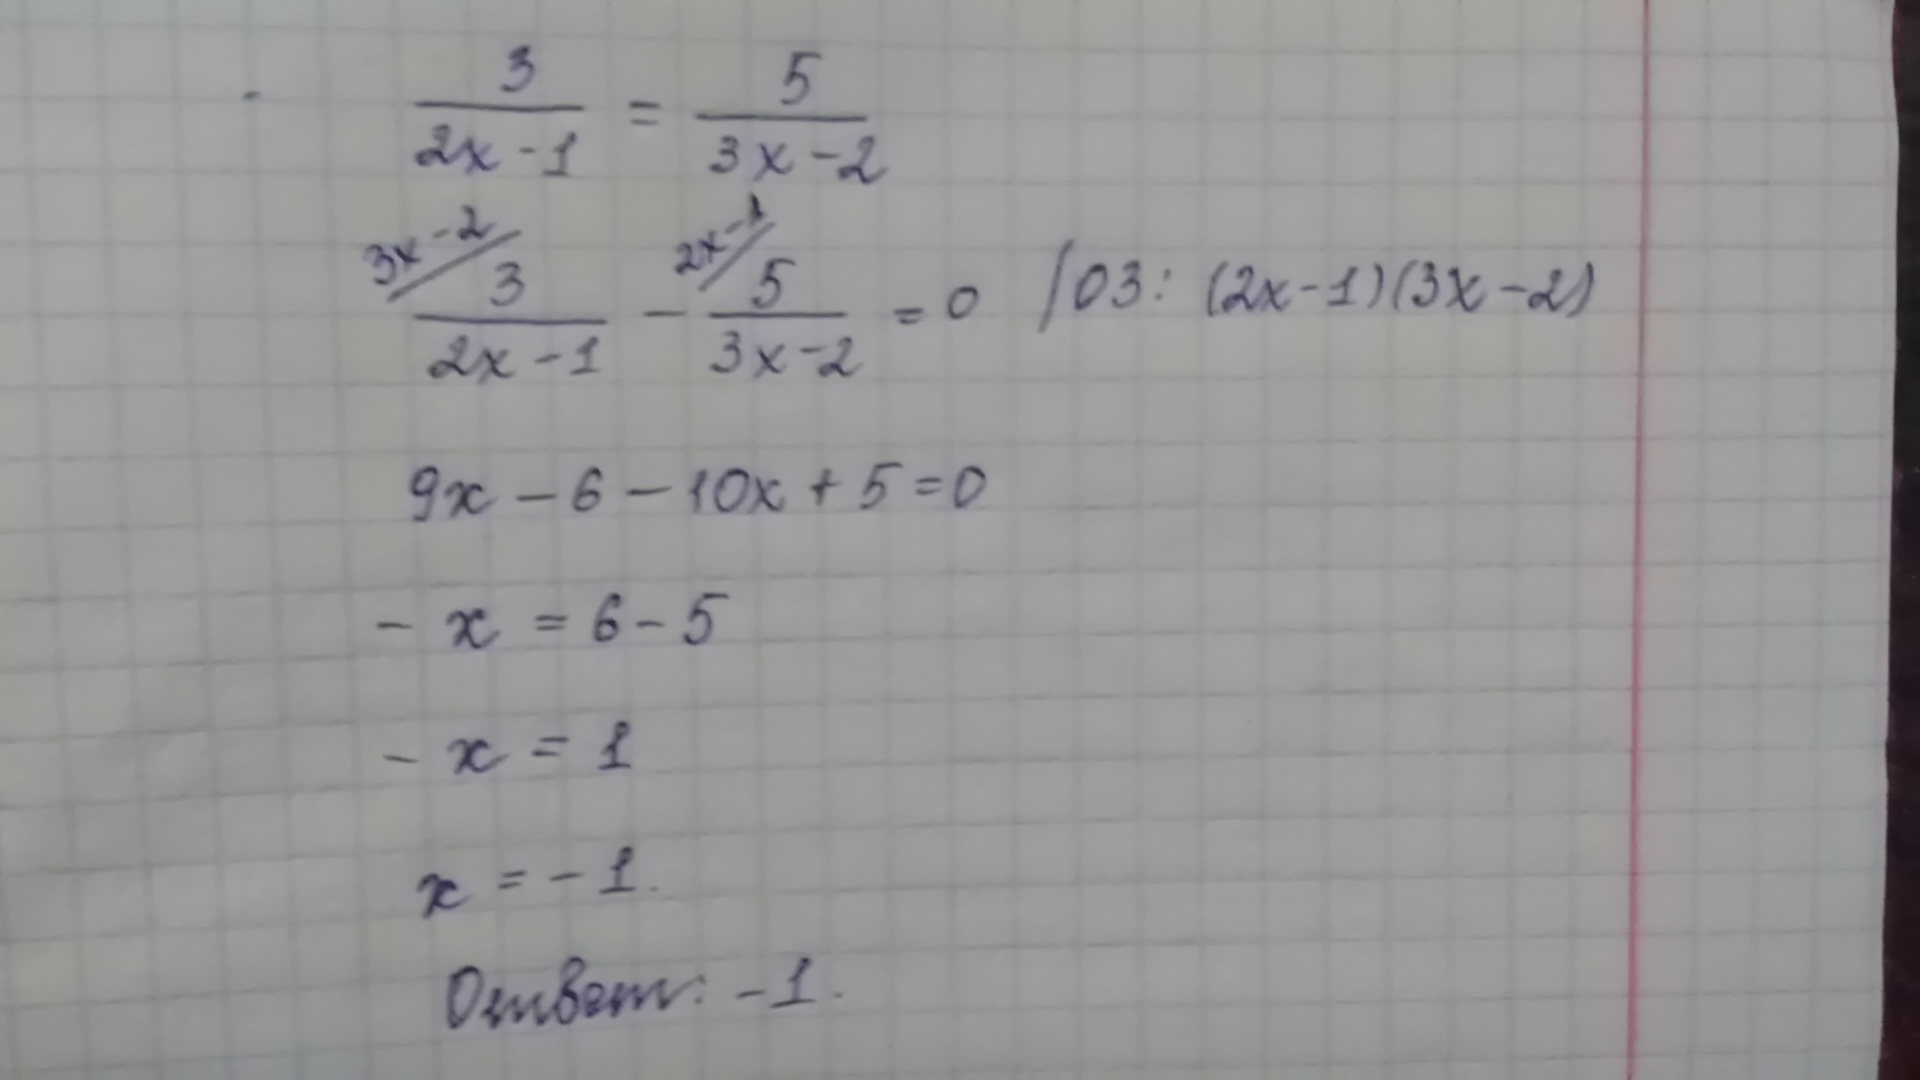 3/(2x-1) = 5/(3x-2)
3x-2/ 3/(2x-1) - 2x-1/ 5/(3x-2) = 0 /ОЗ: (2x-1)(3x-2)
9x - 6 - 10x + 5 = 0
- x = 6 - 5
- x = 1
x = - 1.
Ответ: - 1.